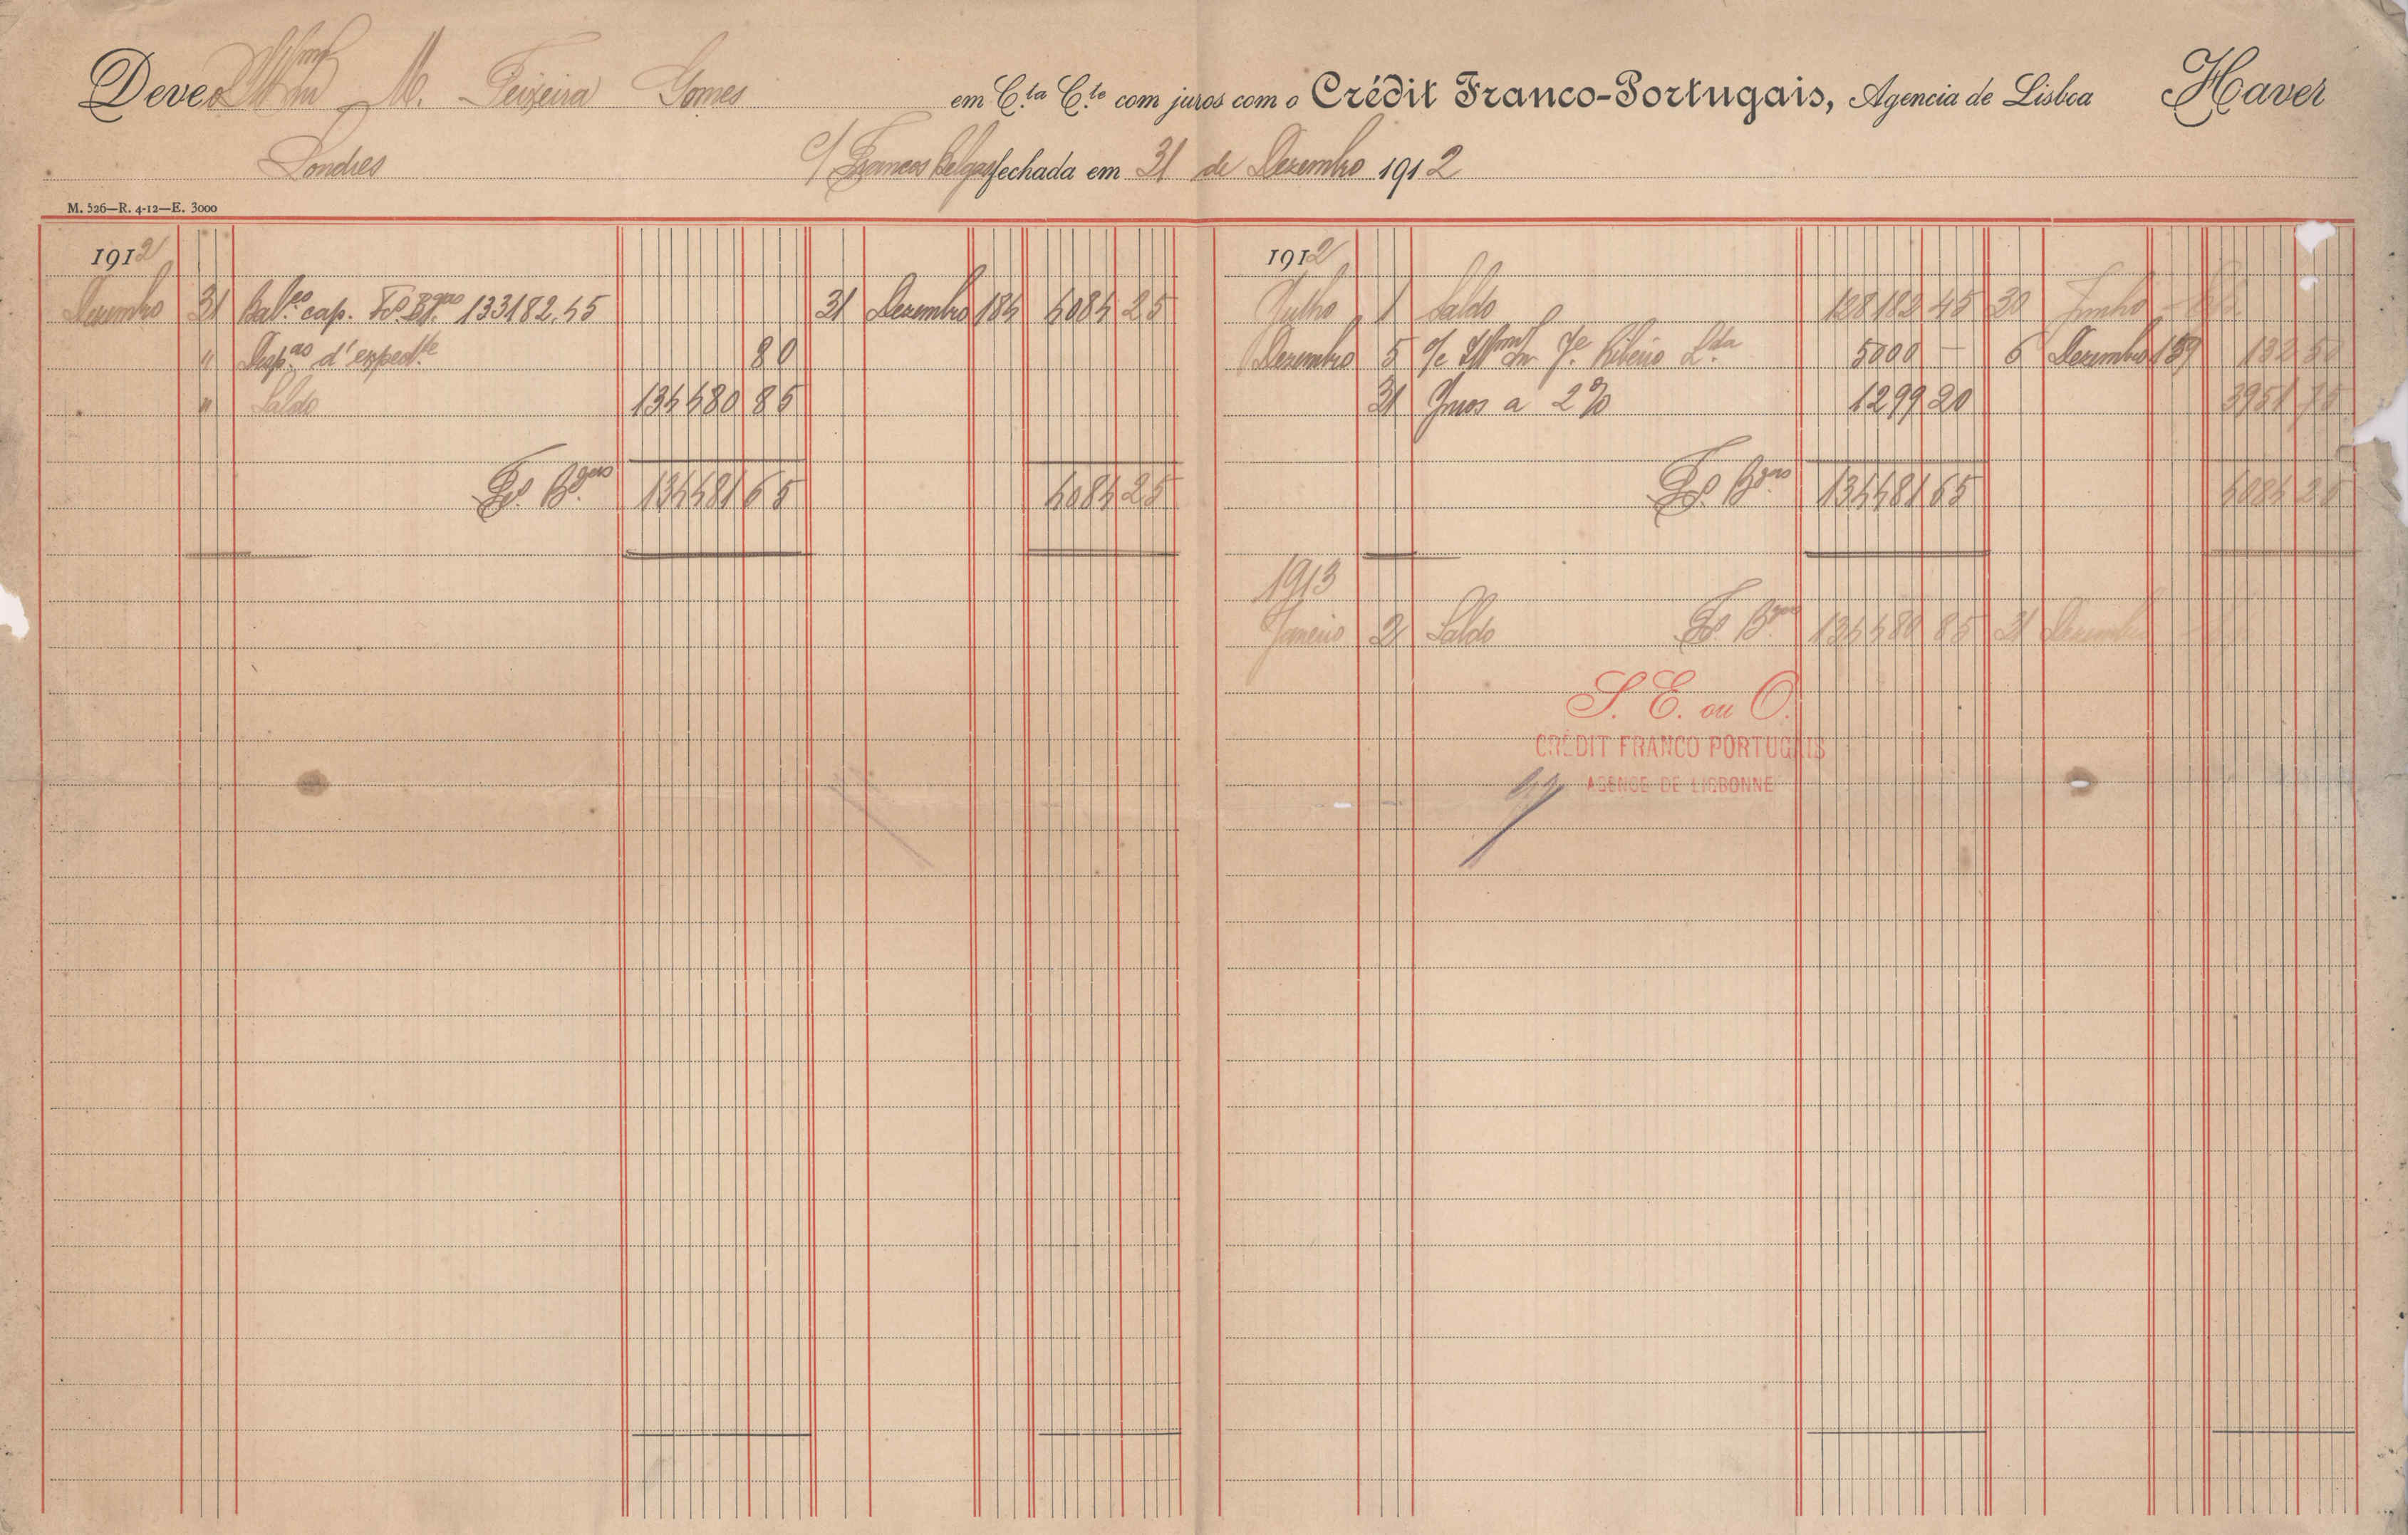 Deve o Illmo Snr M. Teixeira Gomes em C.ta C.te com juros com o Crédit Franco-Portugais, Agencia de Lisboa Haver
Londres c/ Francos Belgas fechada em 31 de Dezembro 1912
M. 526—R. 4-12—E. 3000
1912
Dezembro 31 Bal.ço cap. Fcs. Bgas 133182.45 31 Dezembro 184 4084 25
" Desp.as d'exped.te 80
" Saldo 134480 85
Fcs. Bgas 134481 65 4084 25
1912
Julho 1 Saldo 128182 45 30 Junho
Dezembro 5 Illmo Snr Je. Ribeiro L.da 5000 — 6 Dezembro 159 132 50
31 Juros a 2% 1299 20 3951 75
Fcs. Bgas 134481 65 4084 25
1913
Janeiro 2 Saldo Fcs. Bgas 134480 85 31 Dezembro
S. E. ou O.
CRÉDIT FRANCO PORTUGAIS
AGENCE DE LISBONNE